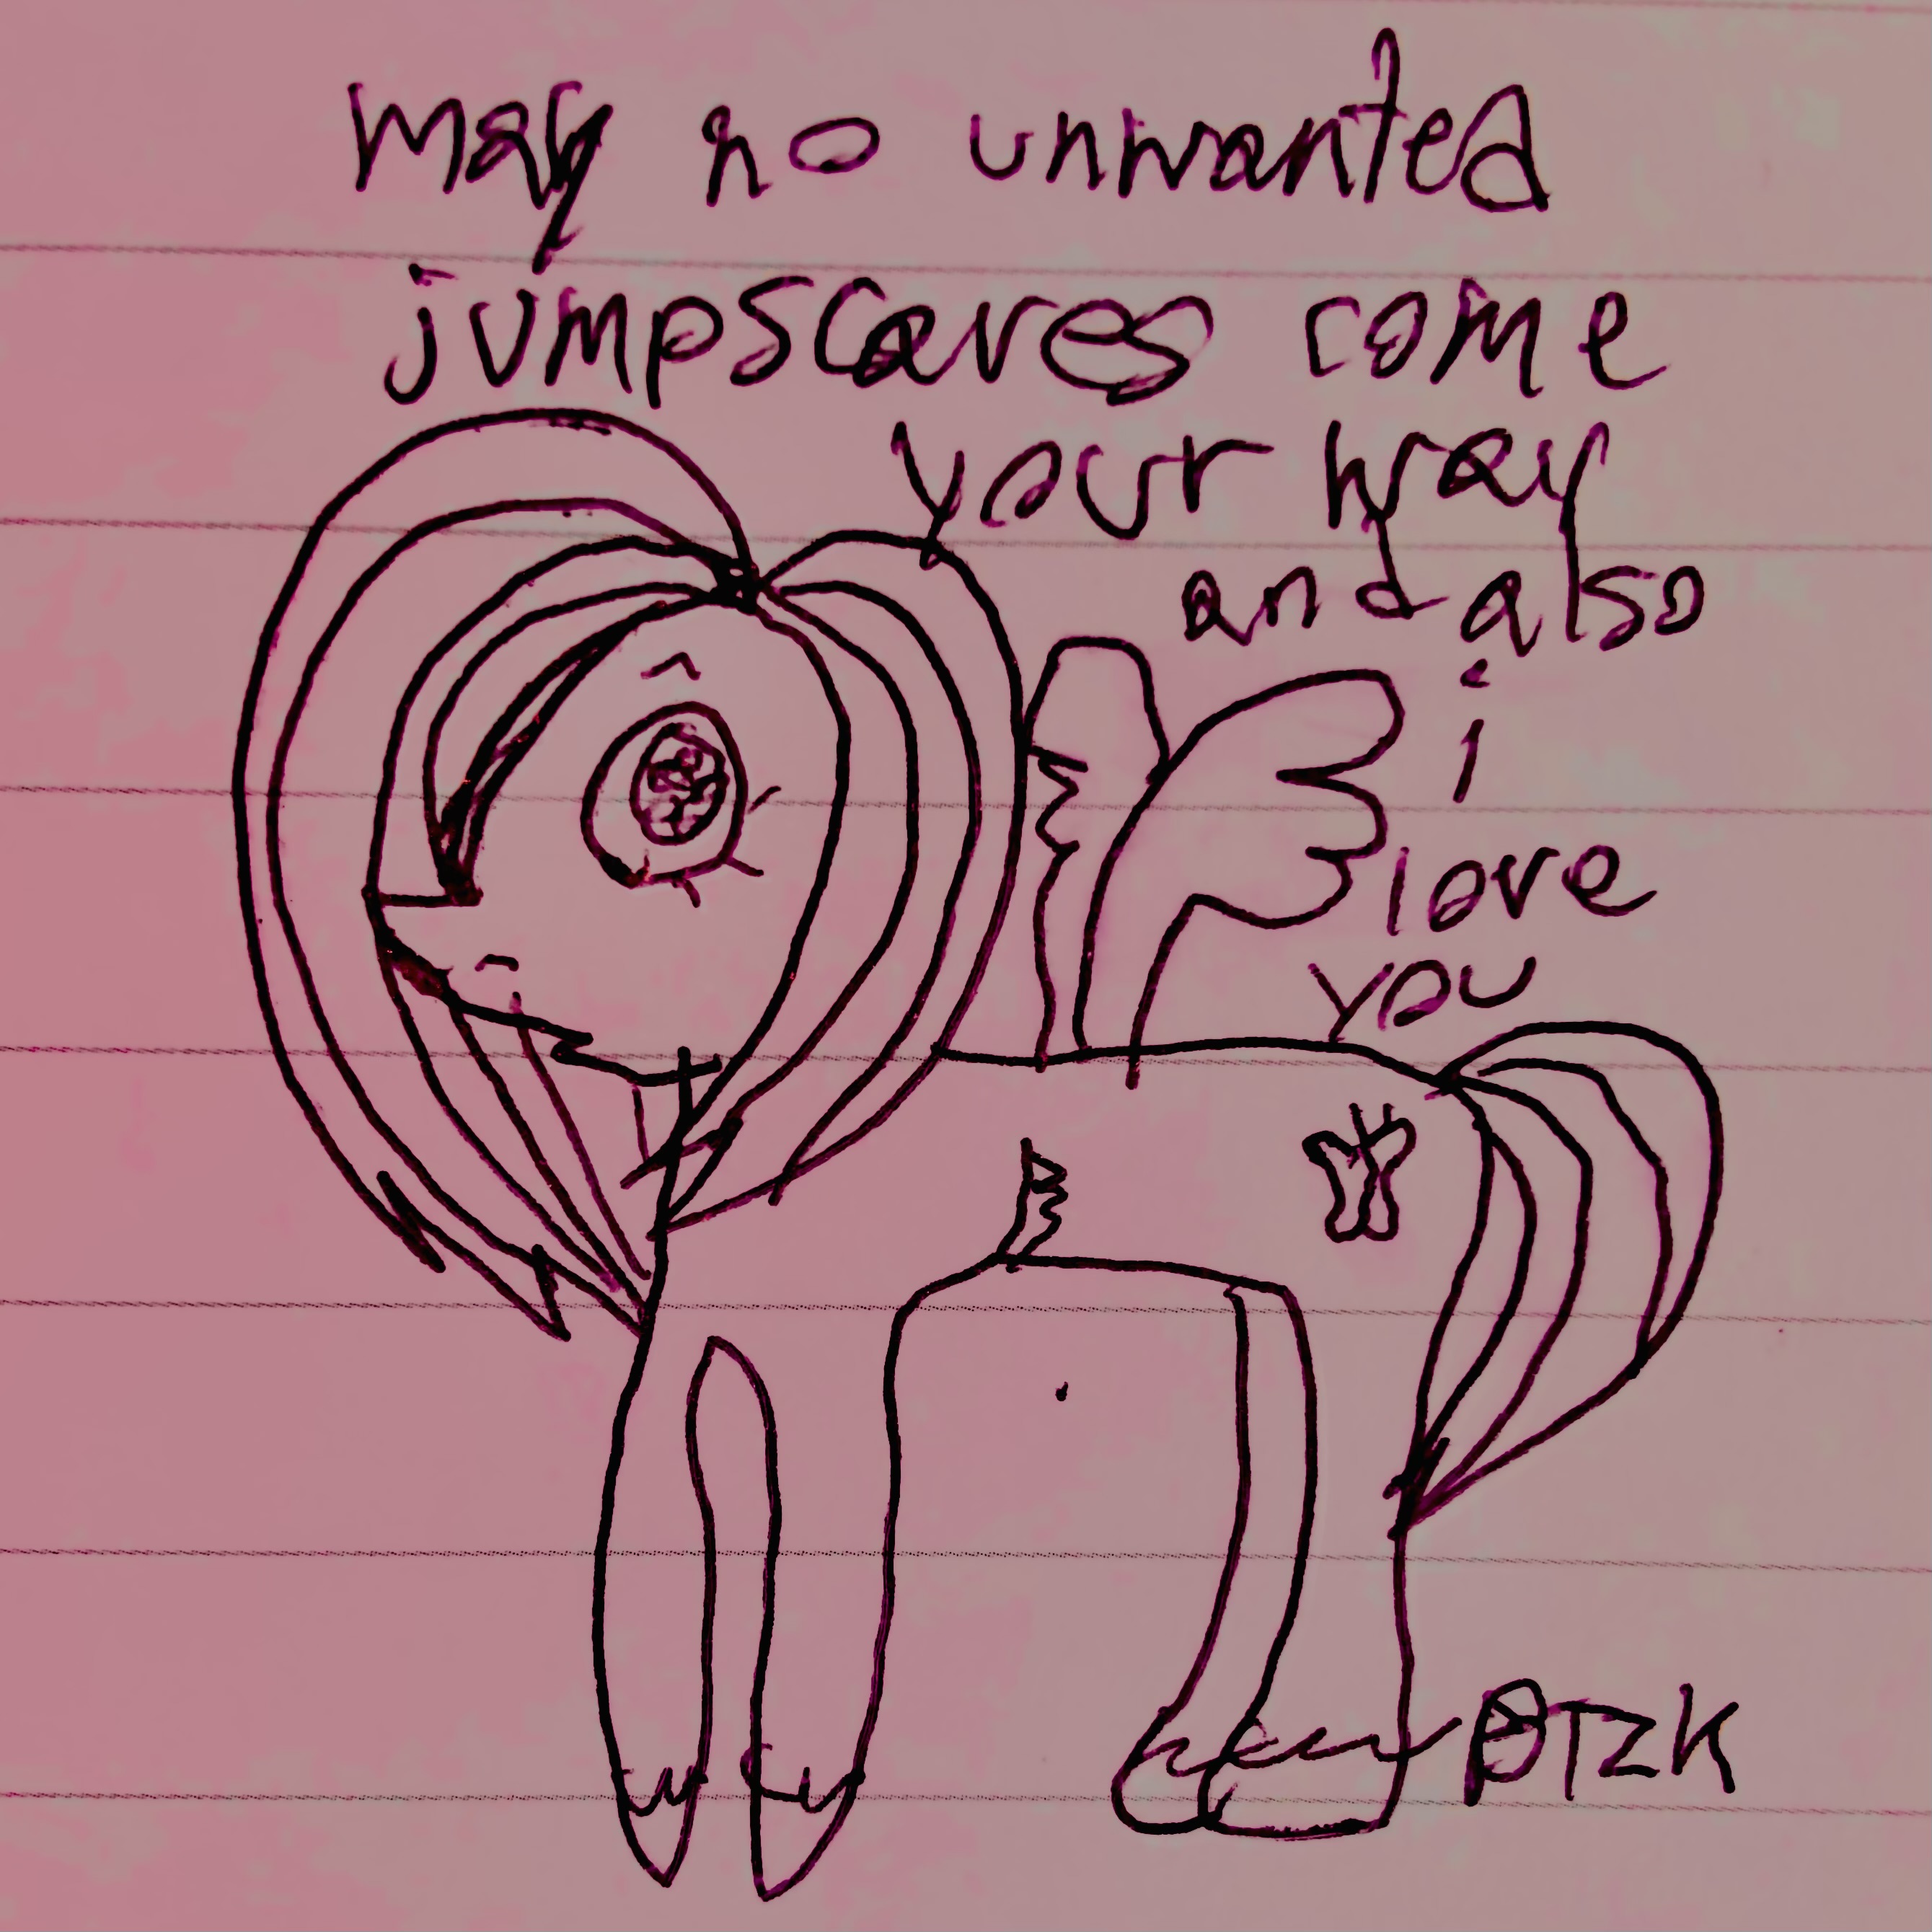 may no unwanted
jumpscares come
your way
and also
i
love
you
PTZK